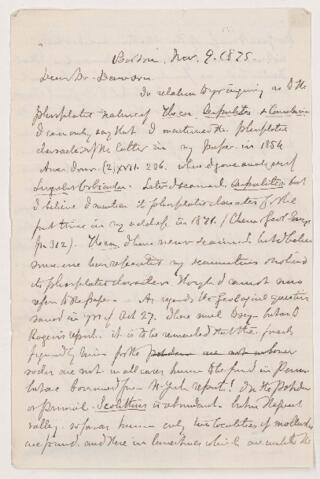 Boston, Nov. 9. 1875
Dear Dr. Dawson
In relation to your inquiry as to the
phosphatic nature of Theca, Serpulites & Conularia
I can only say that I mentioned the phosphatic
character of the latter in my paper in 1854
Amer. Jour. (2) XVII. 236. where I gave analyses of
Lingula & Orbicula. Later I examined Serpulites but
I believe I mention its phosphatic character for the
first time in my address in 1871. (Chem & Geol Essays
p. 312). Theca, I have never examined but I believe
some one has repeated my examinations on
its phosphatic character though I cannot now
refer to the paper. — As regards the geological question
raised in yrs of Oct 27. I have small
Rogers's report. it is to be remembered that the fossils
figured by him for the
rocks are not in all cases known to be found in Penn
but are borrowed from N. York report! In the Potsdam
or Primal. Scolithus is abundant. but in the great
valley so far as known only two localities of mollusks
are found. and there in limestones which are